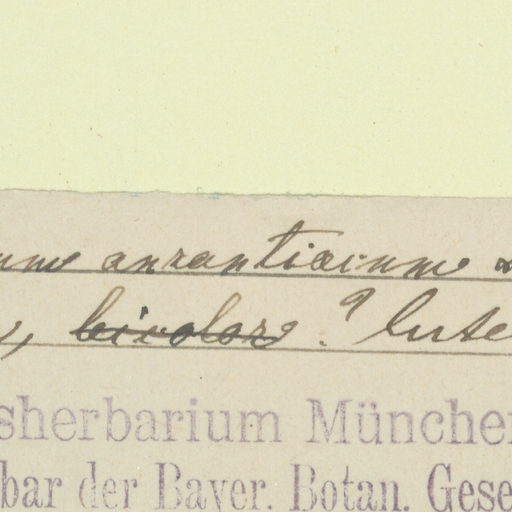 aurantiacum
, bicolor ? lute
sherbarium München
bar der Bayer. Botan. Gese